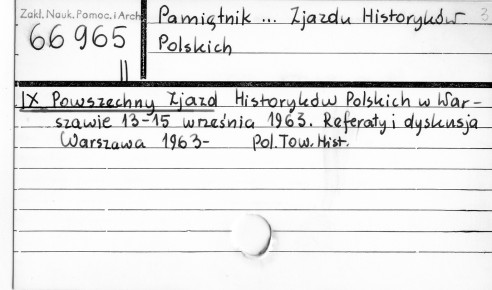 Zakł. Nauk. Pomoc. i Arch.
66 965
II
Pamiętnik ... Zjazdu Historyków
Polskich
3
IX Powszechny Zjazd Historyków Polskich w War-
szawie 13-15 września 1963. Referaty i dyskusja
Warszawa 1963- Pol. Tow. Hist.